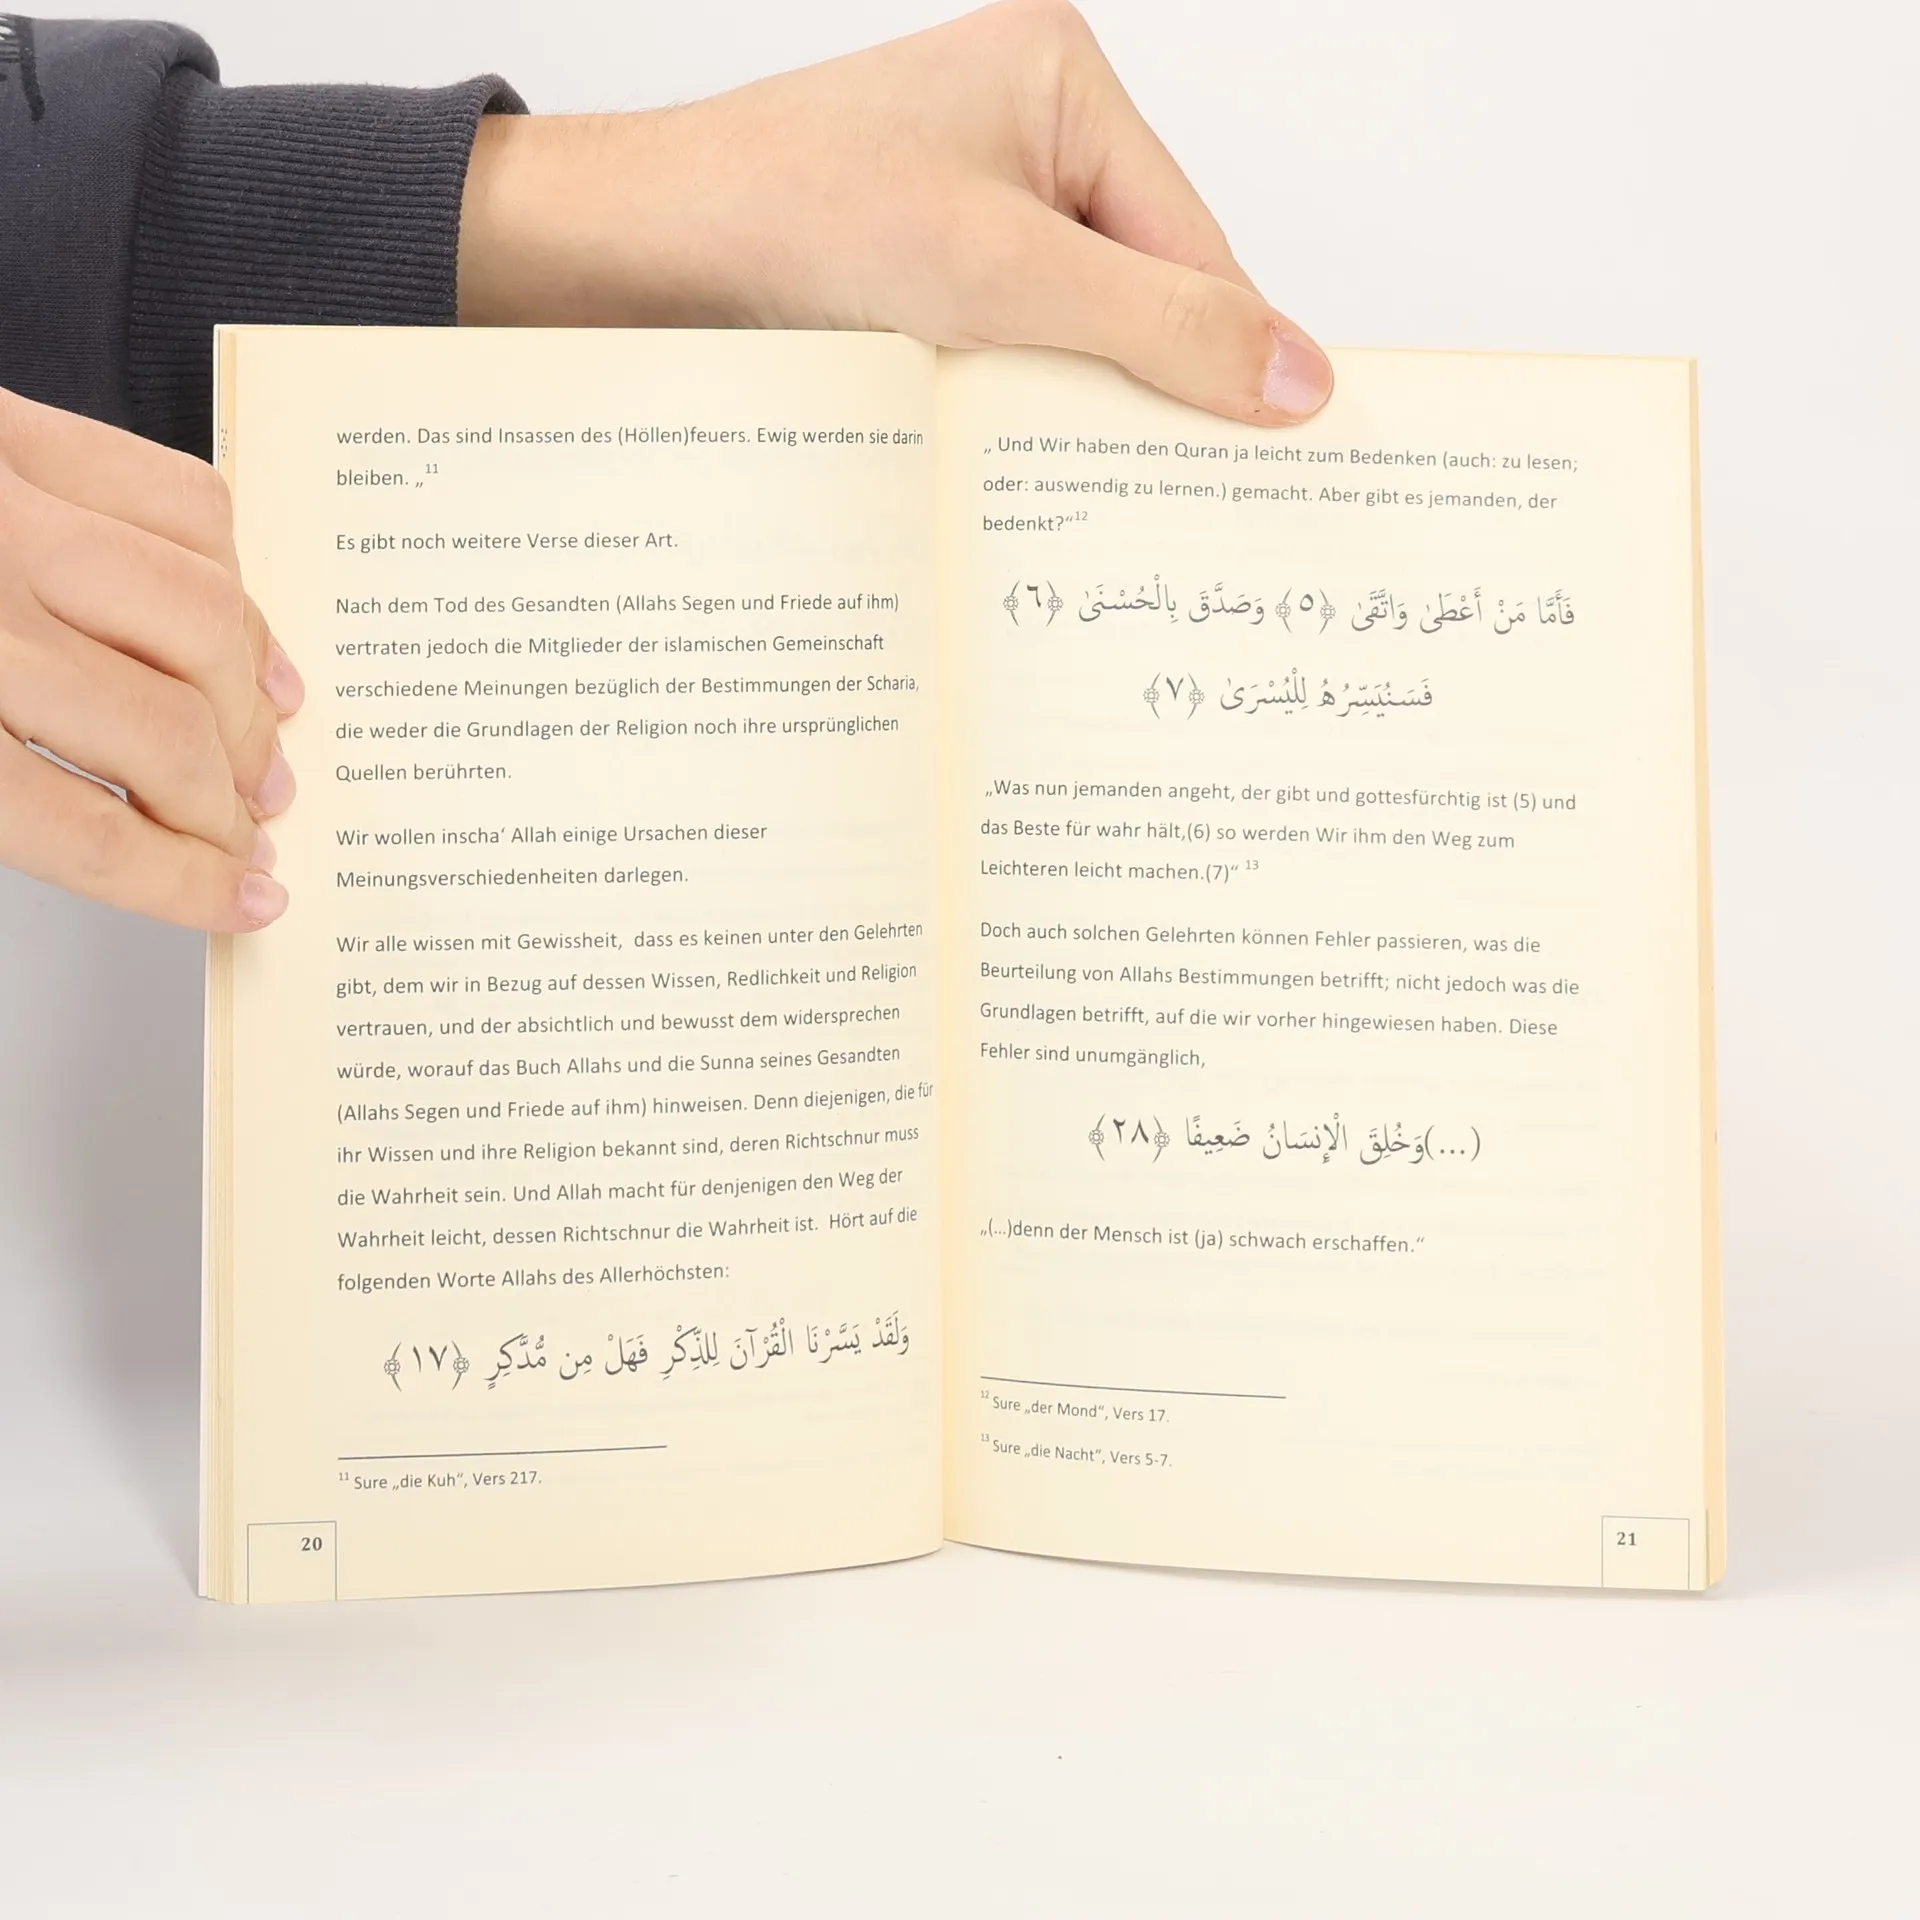 werden. Das sind Insassen des (Höllen)feuers. Ewig werden sie darin
bleiben. „11
Es gibt noch weitere Verse dieser Art.
Nach dem Tod des Gesandten (Allahs Segen und Friede auf ihm)
vertraten jedoch die Mitglieder der islamischen Gemeinschaft
verschiedene Meinungen bezüglich der Bestimmungen der Scharia,
die weder die Grundlagen der Religion noch ihre ursprünglichen
Quellen berührten.
Wir wollen inscha‘ Allah einige Ursachen dieser
Meinungsverschiedenheiten darlegen.
Wir alle wissen mit Gewissheit, dass es keinen unter den Gelehrten
gibt, dem wir in Bezug auf dessen Wissen, Redlichkeit und Religion
vertrauen, und der absichtlich und bewusst dem widersprechen
würde, worauf das Buch Allahs und die Sunna seines Gesandten
(Allahs Segen und Friede auf ihm) hinweisen. Denn diejenigen, die für
ihr Wissen und ihre Religion bekannt sind, deren Richtschnur muss
die Wahrheit sein. Und Allah macht für denjenigen den Weg der
Wahrheit leicht, dessen Richtschnur die Wahrheit ist. Hört auf die
folgenden Worte Allahs des Allerhöchsten:
وَلَقَدْ يَسَّرْنَا الْقُرْآنَ لِلذِّكْرِ فَهَلْ مِن مُّدَّكِرٍ ﴿١٧﴾
11 Sure „die Kuh“, Vers 217.
20
„ Und Wir haben den Quran ja leicht zum Bedenken (auch: zu lesen;
oder: auswendig zu lernen.) gemacht. Aber gibt es jemanden, der
bedenkt?“12
فَأَمَّا مَنْ أَعْطَىٰ وَاتَّقَىٰ ﴿٥﴾ وَصَدَّقَ بِالْحُسْنَىٰ ﴿٦﴾
فَسَنُيَسِّرُهُ لِلْيُسْرَىٰ ﴿٧﴾
„Was nun jemanden angeht, der gibt und gottesfürchtig ist (5) und
das Beste für wahr hält,(6) so werden Wir ihm den Weg zum
Leichteren leicht machen.(7)“ 13
Doch auch solchen Gelehrten können Fehler passieren, was die
Beurteilung von Allahs Bestimmungen betrifft; nicht jedoch was die
Grundlagen betrifft, auf die wir vorher hingewiesen haben. Diese
Fehler sind unumgänglich,
(...)وَخُلِقَ الْإِنسَانُ ضَعِيفًا ﴿٢٨﴾
„(...)denn der Mensch ist (ja) schwach erschaffen.“
12 Sure „der Mond“, Vers 17.
13 Sure „die Nacht“, Vers 5-7.
21